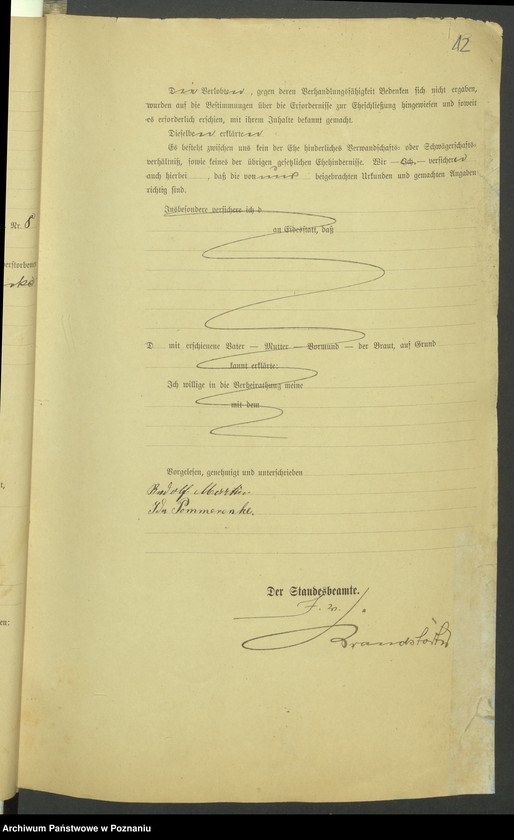 12
Die Verlobten, gegen deren Verhandlungsfähigkeit Bedenken sich nicht ergaben,
wurden auf die Bestimmungen über die Erfordernisse zur Eheschließung hingewiesen und soweit
es erforderlich erschien, mit ihrem Inhalte bekannt gemacht.
Dieselben erklärten
Es besteht zwischen uns kein der Ehe hinderliches Verwandschafts- oder Schwägerschafts-
verhältniß, sowie keines der übrigen gesetzlichen Ehehindernisse. Wir — Ich — versichern
auch hierbei, daß die von uns beigebrachten Urkunden und gemachten Angaben
richtig sind.
Insbesondere versichere ich d
an Eidesstatt, daß
Nr. 8
verstorbenen
D mit erschienene Vater — Mutter — Vormund — der Braut, auf Grund
kannt erklärte:
Ich willige in die Verheirathung meine
mit dem
Vorgelesen, genehmigt und unterschrieben
Rudolf
Ida Pommerenke.
Der Standesbeamte.
Brandstädter
en:
Archiwum Państwowe w Poznaniu